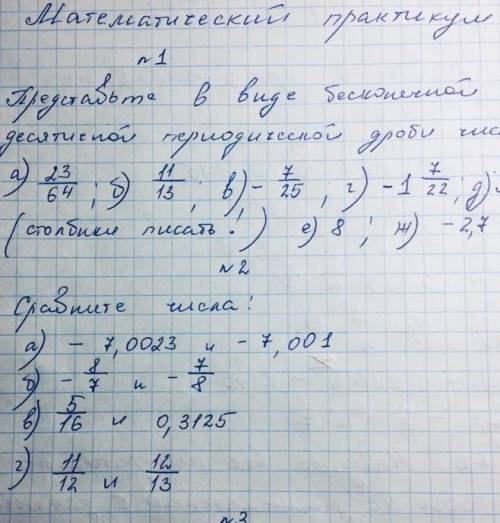 Математический практикум
№1
Представьте в виде бесконечной
десятисной периодической дроби чис
а) 23/64 ; б) 11/13 ; в) - 7/25 , г) -1 7/22 ; д)
(столбики писать!) е) 8 ; ж) -2,7
№2
Сравните числа:
а) - 7,0023 и - 7,001
б) - 8/7 и - 7/8
в) 5/16 и 0,3125
г) 11/12 и 12/13
№3